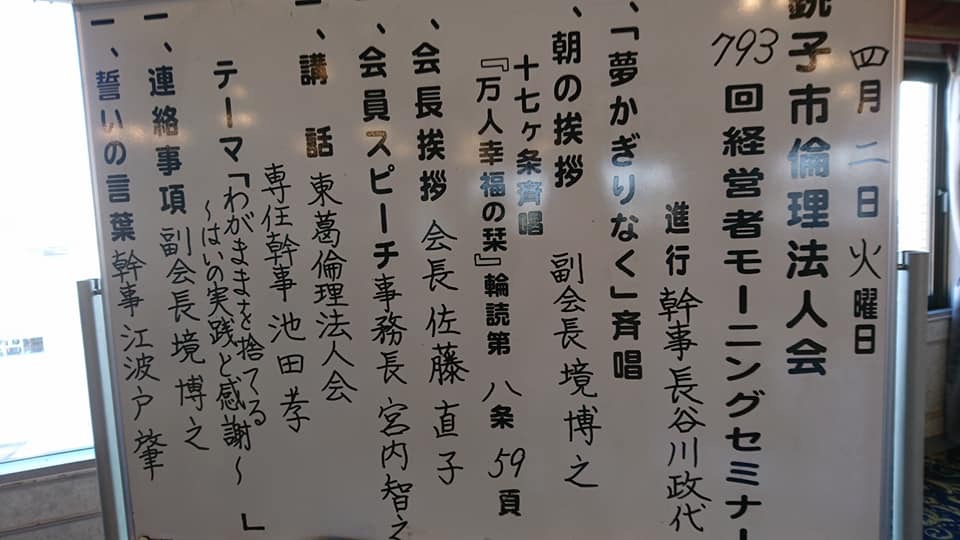 四月二日火曜日
銚子市倫理法人会
793回経営者モーニングセミナー
進行 幹事 長谷川政代
、「夢かぎりなく」斉唱
、朝の挨拶 副会長 境 博之
十七ヶ条斉唱
『万人幸福の栞』輪読第 八条 59頁
、会長挨拶 会長 佐藤 直子
、会員スピーチ 事務長 宮内智之
一、講 話 東葛倫理法人会
専任幹事 池田 孝
テーマ「わがままを捨てる
～はいの実践と感謝～」
一、連絡事項 副会長 境 博之
一、誓いの言葉 幹事 江波戸 肇